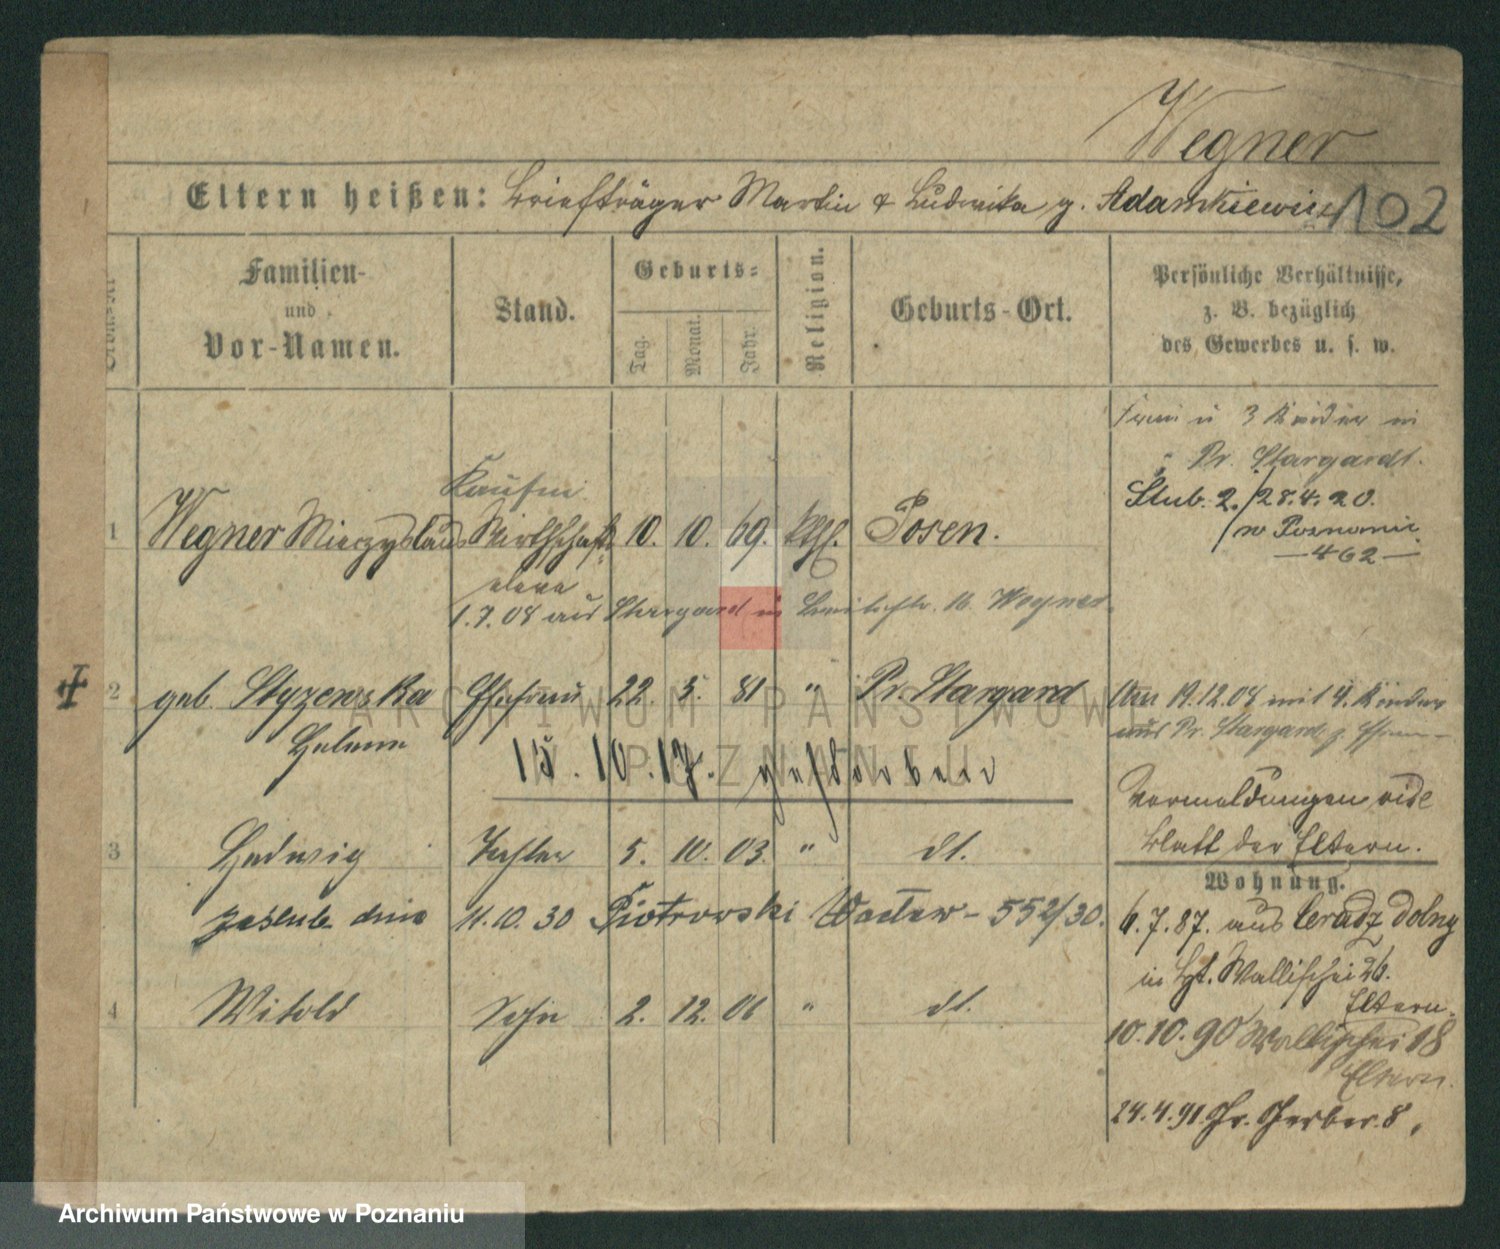 Wegner
Eltern heißen: Briefträger Martin & Ludwika g. Adamkiewicz 102
Familien- und Vor-Namen.
Stand.
Geburts-
Tag. Monat. Jahr.
Religion.
Geburts-Ort.
Persönliche Verhältnisse,
z. B. bezüglich
des Gewerbes u. s. w.
Frau u 3 Kinder in
Pr. Stargardt.
Ślub. 2./28.4.20.
w Poznaniu
—462—
Kaufm
1 Wegner Mieczyslaus Wirthschafts 10. 10. 69. kth. Posen.
eleve
1.7.08 aus Stargard in Breitestr. 16 Wegner
2 geb. Styzewska Ehefrau 22. 5. 81 " Pr. Stargard
Helene
Am 19.12.08 mit 4. Kinder
aus Pr. Stargard z. Ehem-
15.10.17. gestorben
Vormeldungen vide
Blatt der Eltern.
3 Hedwig Tochter 5. 10. 03. " dt.
zaślub. dnia 11.10.30 Piotrowski Wacław - 552/30.
4 Witold Sohn 2. 12. 06 " dt.
Wohnung.
6.7.87. aus Ceradz dolny
in Wallischei 26.
Eltern.
10.10.90 Wallischei 18
Eltern.
24.4.91. Gr. Gerber. 8,
ARCHIWUM PAŃSTWOWE
W POZNANIU
Archiwum Państwowe w Poznaniu